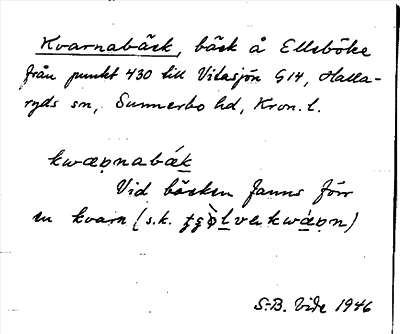 Kvarnabäck, bäck å Ellsböke
från punkt 430 till Vitasjön G14, Halla-
ryds sn, Sunnerbo hd, Kron. l.
kwæpnabák
Vid bäcken fanns förr
en kvarn (s.k. kwæpn)
S-B. Vide 1946